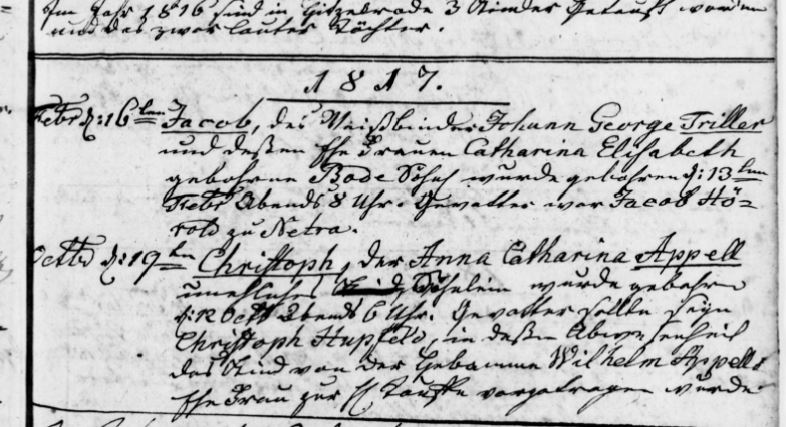 Im Jahr 1816 sind in Hitzelrode 3 Kinder getauft worden
und das zwar lauter Töchter.
1817.
Febr d: 16ten Jacob, des Weißbinders Johann George Triller
und deßen Ehe Frauen Catharina Elisabeth
gebohrne Bode Söhnl wurde gebohren d: 13ten
Febr Abends 8 Uhr. Gevatter war Jacob Hö-
rold zu Netra.
Octbr d: 19ten Christoph, der Anna Catharina Appell
unehliches Söhnlein wurde gebohren
d: 12 Octbr Abends 6 Uhr. Gevatter sollte seyn
Christoph Hupfeld, in deßen Abwesenheit
das Kind von der Hebamme Wilhelm Appells
Ehe Frau zur H Taufe vorgetragen wurde